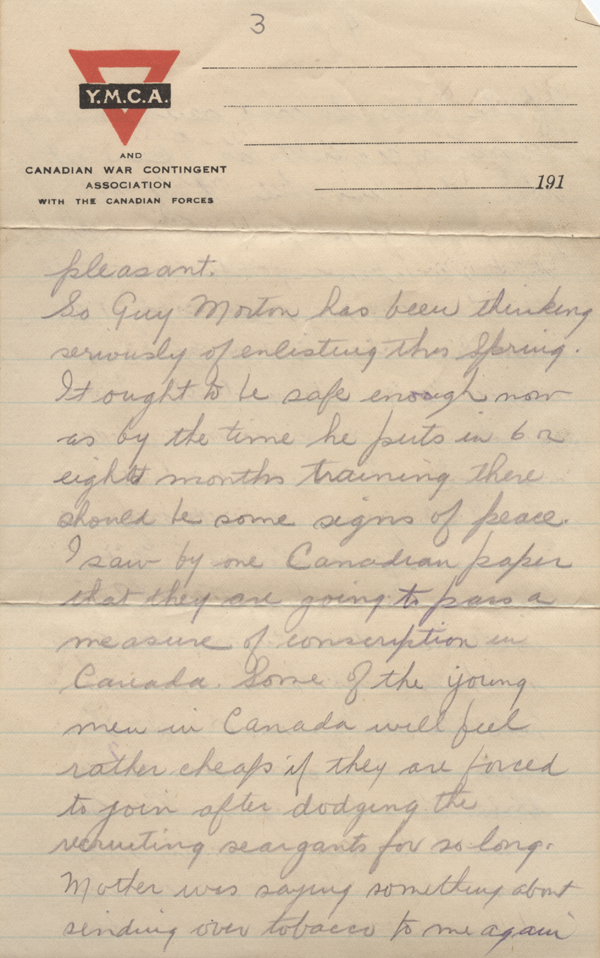 3
Y.M.C.A.
AND
CANADIAN WAR CONTINGENT
ASSOCIATION
WITH THE CANADIAN FORCES
191
pleasant.
So Guy Morton has been thinking
seriously of enlisting this Spring.
It ought to be safe enough now
as by the time he puts in 6 or
eight months training there
should be some signs of peace.
I saw by one Canadian paper
that they are going to pass a
measure of conscription in
Canada. Some of the young
men in Canada will feel
rather cheap if they are forced
to join after dodging the
recruiting seargants for so long.
Mother was saying something about
sending over tobacco to me again